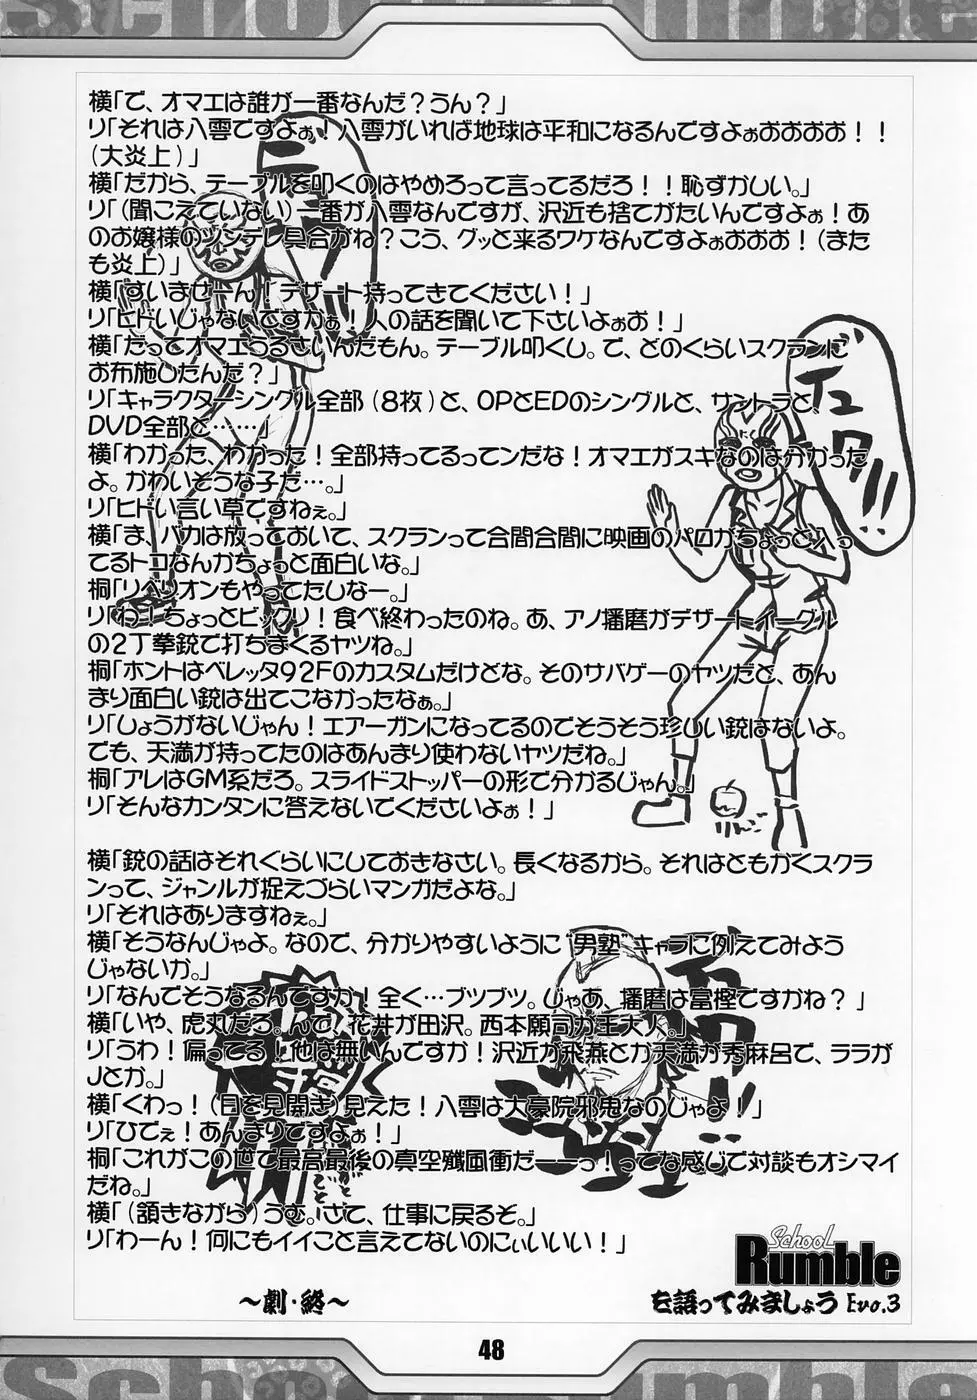 School Rumble
横「で、オマエは誰が一番なんだ？うん？」
リ「それは八雲ですよぉ！八雲がいれば地球は平和になるんですよぉおおおお！！
(大炎上)」
横「だから、テーブルを叩くのはやめろって言ってるだろ！！恥ずかしい。」
リ「(聞こえていない)一番が八雲なんですが、沢近も捨てがたいんですよぉ！あ
のお嬢様のツンデレ具合がね？こう、グッと来るワケなんですよぉおおお！(また
も炎上)」
横「すいませーん！デザート持ってきてください！」
リ「ヒドいじゃないですかぁ！人の話を聞いて下さいよぉお！」
横「だってオマエうるさいんだもん。テーブル叩くし。で、どのくらいスクランに
お布施したんだ？」
リ「キャラクターシングル全部(8枚)と、OPとEDのシングルと、サントラと、
DVD全部と……」
横「わかった、わかった！全部持ってるってンだな！オマエがスキなのは分かった
よ。かわいそうな子だ…。」
リ「ヒドい言い草ですねぇ。」
横「ま、バカは放っておいて、スクランって合間合間に映画のパロがちょっと入っ
てるトコなんかちょっと面白いな。」
桐「リベリオンもやってたしなー。」
リ「わ！ちょっとビックリ！食べ終わったのね。あ、アノ播磨がデザートイーグル
の2丁拳銃で打ちまくるヤツね。」
桐「ホントはベレッタ92Fのカスタムだけどな。そのサバゲーのヤツだと、あん
まり面白い銃は出てこなかったなぁ。」
リ「しょうがないじゃん！エアーガンになってるのでそうそう珍しい銃はないよ。
でも、天満が持ってたのはあんまり使わないヤツだね。」
桐「アレはGM系だろ。スライドストッパーの形で分かるじゃん。」
リ「そんなカンタンに答えないでくださいよぉ！」
りんご
横「銃の話はそれぐらいにしておきなさい。長くなるから。それはともかくスクラ
ンって、ジャンルが捉えづらいマンガだよな。」
リ「それはありますねぇ。」
横「そうなんじゃよ。なので、分かりやすいように“男塾”キャラに例えてみよう
じゃないか。」
リ「なんでそうなるんですか！全く…ブツブツ。じゃあ、播磨は富樫ですかね？」
横「いや、虎丸だろ。んで、花井が田沢。西本願司が王大人。」
リ「うわ！偏ってる！他は無いんですか！沢近が飛燕とか天満が秀麻呂で、ララが
Jとか。」
横「くわっ！(目を見開き)見えた！八雲は大豪院邪鬼なのじゃよ！」
リ「ひでぇ！あんまりですよぉ！」
桐「これがこの世で最高最後の真空殲風衝だーーっ！ってな感じで対談もオシマイ
だね。」
横「(頷きながら)うむ。さて、仕事に戻るぞ。」
リ「わーん！何にもイイこと言えてないのにぃいいい！」
School
Rumble
～劇・終～
を語ってみましょう Evo.3
48
School Rumble